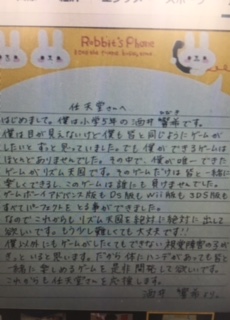 Rabbit's Phone
任天堂さんへ
はじめまして。僕は小学5年の酒井です。
僕は目が見えないけど僕も皆と同じようにゲームが
したいとずっと思っていました。でも僕ができるゲームは
ほとんどありませんでした。その中で、僕が唯一できた
ゲームがリズム天国です。そのゲームだけは皆と一緒に
楽しくできるし、このゲームは誰にも負けませんでした。
ゲームボーイアドバンス版もDS版もWii版も3DS版も
すべてパーフェクトをとる事ができました。
なのでこれからもリズム天国を絶対に絶対に出して
欲しいです。もう少し難しくても大丈夫です!!
僕以外にもゲームがしたくてもできない視覚障害の子が
きっといると思います。だから体にハンデがあっても皆と
一緒に楽しめるゲームを是非開発して欲しいです。
これからも任天堂さんを応援します。
酒井 より